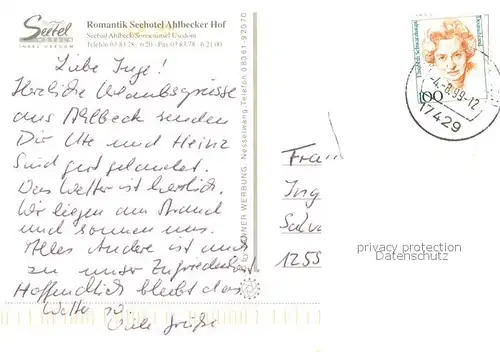 Seetel
HOTELS
INSEL USEDOM
Romantik Seehotel Ahlbecker Hof
Seebad Ahlbeck/Sonneninsel Usedom
Telefon 03 83 78 - 6 20 - Fax 03 83 78 - 6 21 00
Liebe Inge!
Herzliche Urlaubsgrüsse
aus Ahlbeck senden
Dir Ute und Heinz
Sind gut gelandet.
Das Wetter ist herrlich.
Wir liegen am Strand
und sonnen uns.
Alles Andere ist auch
zu unser Zufriedenheit
Hoffentlich bleibt das
Wetter so.
Viele Grüße
WERBUNG Nesselwang Telefon 08361-92070
Deutschland
100
-4.-8.99-12
17429
Frau
Ing
Salv
1255
privacy protection
Datenschutz